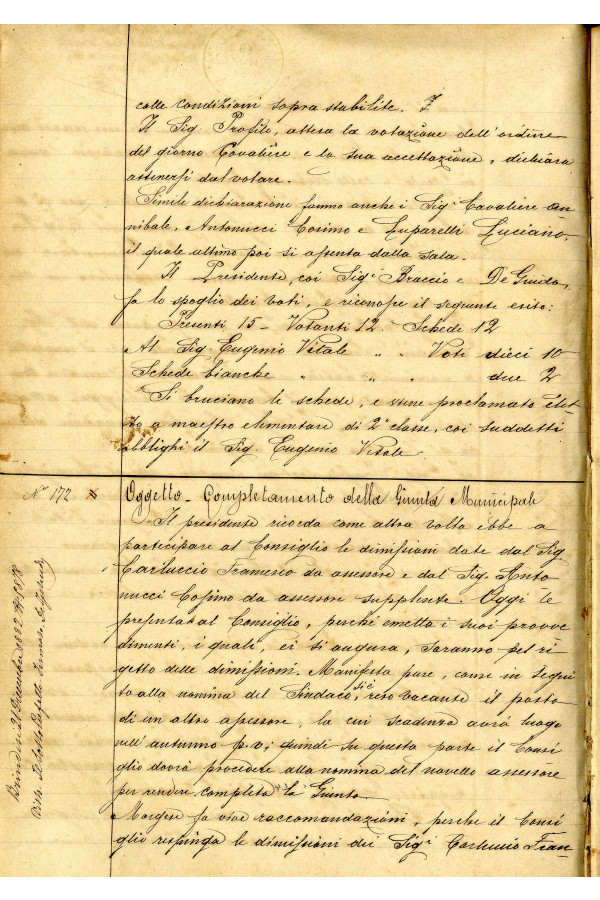 colle condizioni sopra stabilite.
Il Sig. Profilo, attesa la votazione dell'ordine
del giorno Cavaliere e la sua accettazione, dichiara
astenersi dal votare.
Simile dichiarazione fanno anche i Sig.i Cavaliere An-
nibale, Antonucci Cosimo e Luparelli Luciano,
il quale ultimo poi si assenta dalla sala.
Il Presidente, coi Sig.i Braccio e De Guido,
fa lo spoglio dei voti, e riconosce il seguente esito:
Presenti 15 - Votanti 12. Schede 12
Al Sig. Eugenio Vitale " " Voti dieci 10
Schede bianche " " " due 2
Si bruciano le schede, e viene proclamato elet-
to a maestro elementare di 2a classe, coi suddetti
obblighi il Sig. Eugenio Vitale
No 172
Oggetto - Completamento della Giunta Municipale
Il presidente ricorda come altra volta ebbe a
partecipare al Consiglio le dimissioni date dal Sig.
Carluccio Francesco da assessore e dal Sig. Anto
nucci Cosimo da assessore supplente. Oggi le
presenta al Consiglio, perchè emetta i suoi provve
dimenti, i quali, ei si augura, saranno pel ri
getto delle dimissioni. Manifesta pure, come in segui
to alla nomina del Sindaco, siè reso vacante il posto
di un altro assessore, la cui scadenza avrà luogo
nell'autunno p.v.; quindi su questa parte il Consi
glio dovrà procedere alla nomina del novello assessore
per rendere completa la Giunta
Morgese fa vive raccomandazioni, perchè il Consi
glio respinga le dimissioni dei Sig.i Carluccio Fran-
Brindisi 21 Dicembre 1882
Visto. Il Sotto Prefetto